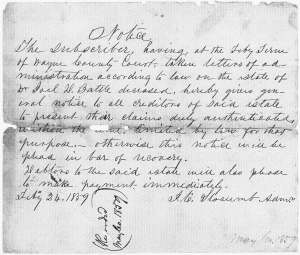 Notice
The Subscriber, having, at the Feby Term
of Wayne County Court, taken letters of ad-
ministration according to law on the estate of
Dr Joel W. Battle deceased, hereby gives gen-
eral notice to all creditors of said estate
to present their claims duly authenticated,
within the time, limited by law for that
purpose, — otherwise this notice will be
plead in bar of recovery.
Debtors to the said estate will also please
to make payment immediately.
Feby 24. 1859
Admr
1859